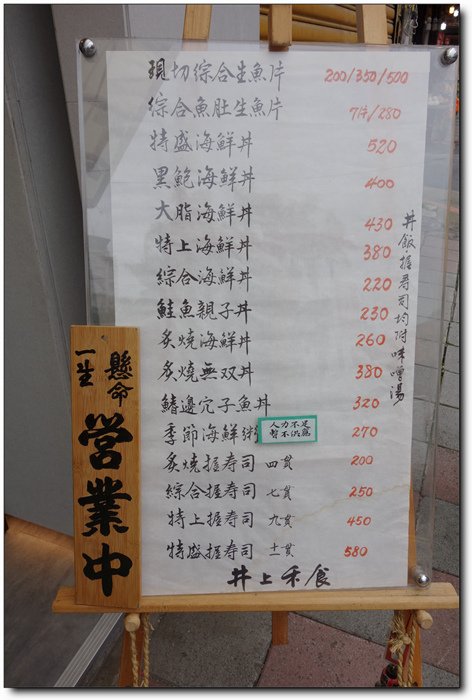 現切綜合生魚片 200/350/500
綜合魚肚生魚片 7片/280
特盛海鮮丼 520
黑鮑海鮮丼 400
大脂海鮮丼 430
特上海鮮丼 380
綜合海鮮丼 220
鮭魚親子丼 230
炙燒海鮮丼 260
炙燒無双丼 380
鰭邊穴子魚丼 320
季節海鮮粥 270
人力不足
暫不供應
炙燒握寿司 四貫 200
綜合握寿司 七貫 250
特上握寿司 九貫 450
特盛握寿司 十一貫 580
井上禾食
丼飯·握寿司均附味噌湯
一生
懸命
營業中